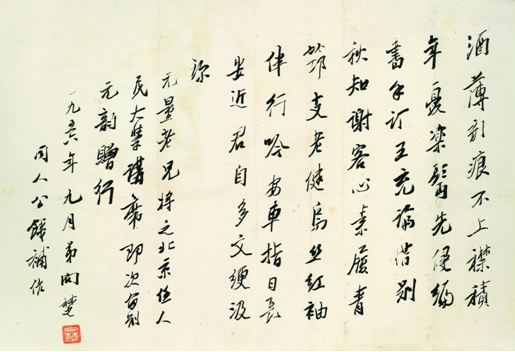 酒薄痕不上襟積
年憂染鬢先侵編
書手訂王充論惜別
秋知謝客心素履青
筇支老健烏絲紅袖
伴行吟安車指日長
安近君自多文綆汲
深
元量老兄將之北京任人
民大學講席即次留別
元韵贈行
一九五六年九月弟向楚
同人公餞補作